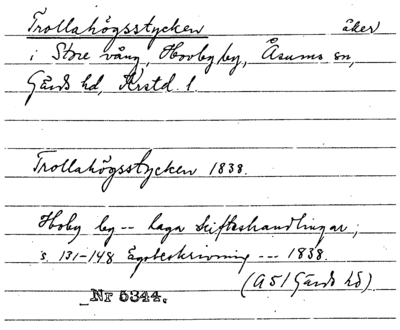 Trollahögsstycken åker
i Store vång, Hovby by, Åsums sn,
Gärds hd, Krstd. l.
Trollahögsstycken 1838.
Hoby by -- Laga Skifteshandlingar,
s. 131-148 Egobeskrivning --- 1838.
(A 51 Gärds hd)
Nr 5344.